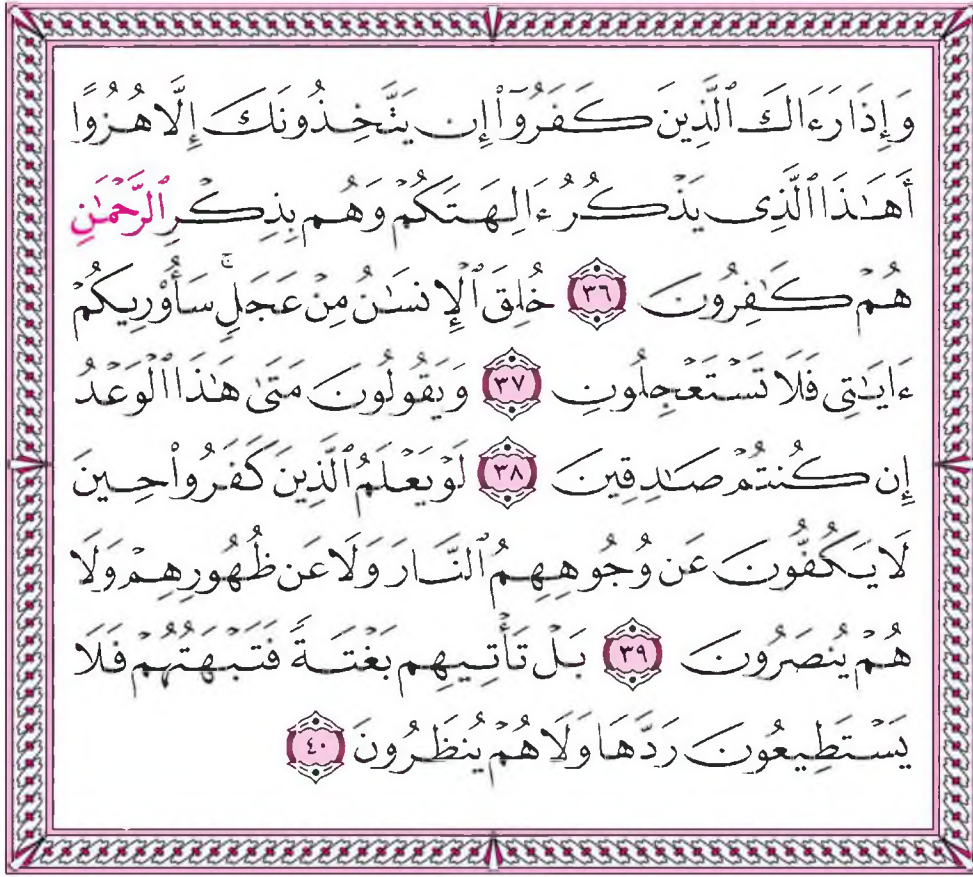 وَإِذَا رَءَاكَ ٱلَّذِينَ كَفَرُوٓا۟ إِن يَتَّخِذُونَكَ إِلَّا هُزُوًا
أَهَـٰذَا ٱلَّذِى يَذْكُرُ ءَالِهَتَكُمْ وَهُم بِذِكْرِ ٱلرَّحْمَـٰنِ
هُمْ كَـٰفِرُونَ ٣٦ خُلِقَ ٱلْإِنسَـٰنُ مِنْ عَجَلٍ ۚ سَأُو۟رِيكُمْ
ءَايَـٰتِى فَلَا تَسْتَعْجِلُونِ ٣٧ وَيَقُولُونَ مَتَىٰ هَـٰذَا ٱلْوَعْدُ
إِن كُنتُمْ صَـٰدِقِينَ ٣٨ لَوْ يَعْلَمُ ٱلَّذِينَ كَفَرُوا۟ حِينَ
لَا يَكُفُّونَ عَن وُجُوهِهِمُ ٱلنَّارَ وَلَا عَن ظُهُورِهِمْ وَلَا
هُمْ يُنصَرُونَ ٣٩ بَلْ تَأْتِيهِم بَغْتَةً فَتَبْهَتُهُمْ فَلَا
يَسْتَطِيعُونَ رَدَّهَا وَلَا هُمْ يُنظَرُونَ ٤٠